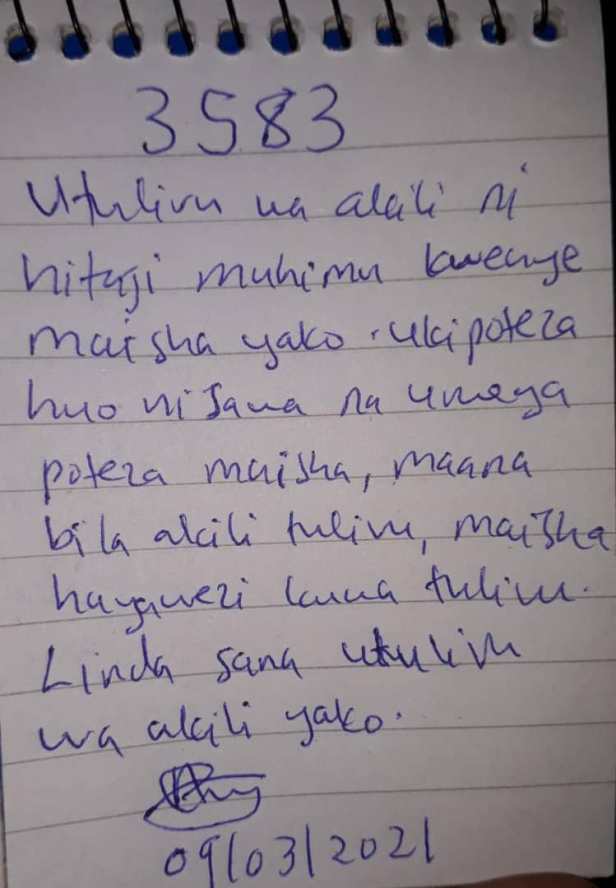 3583
Utulivu wa akili ni
hitaji muhimu kwenye
maisha yako. ukipoteza
huo ni sawa na umeya
poteza maisha, maana
bila akili tulivu, maisha
hayawezi kuwa tulivu.
Linda sana utulivu
wa akili yako.
09/03/2021